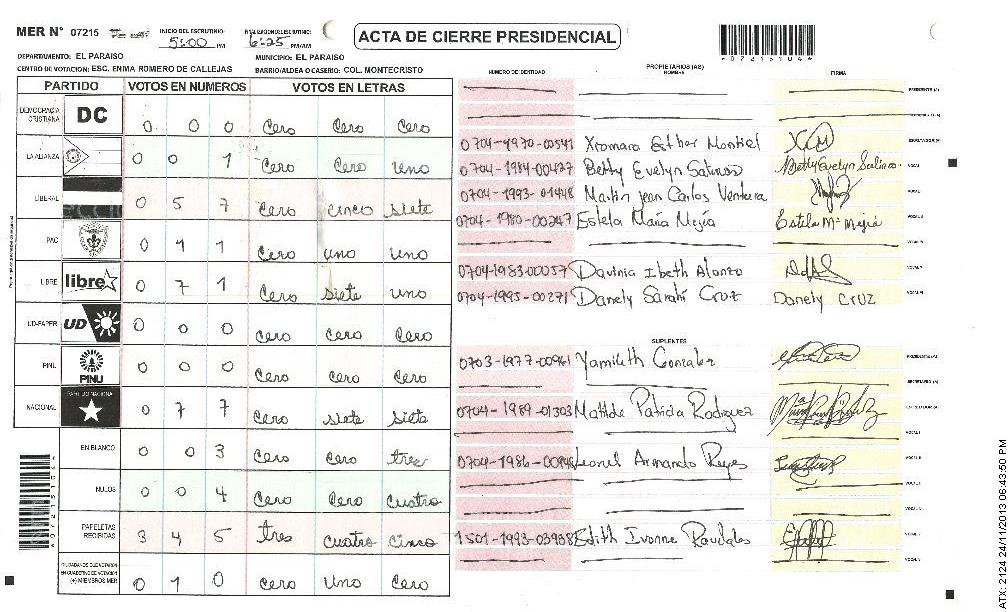 MER N° 07215 INICIO DEL ESCRUTINIO: 5:00 PM 6:25 PM/AM
ACTA DE CIERRE PRESIDENCIAL
07215104
DEPARTAMENTO: EL PARAISO MUNICIPIO: EL PARAISO
CENTRO DE VOTACION: ESC. ENMA ROMERO DE CALLEJAS BARRIO/ALDEA O CASERIO: COL. MONTECRISTO
PARTIDO VOTOS EN NUMEROS VOTOS EN LETRAS
DEMOCRACIA CRISTIANA DC 0 0 0 Cero Cero Cero
LA ALIANZA 0 0 1 Cero Cero Uno
LIBERAL 0 5 7 Cero cinco siete
PAC 0 1 1 Cero uno uno
LIBRE libre 0 7 1 Cero siete uno
UD-FAPER UD 0 0 0 Cero Cero Cero
PINU PINU 0 0 0 Cero Cero Cero
NACIONAL PARTIDO NACIONAL 0 7 7 Cero siete siete
EN BLANCO 0 0 3 Cero Cero tres
NULOS 0 0 4 Cero Cero Cuatro
PAPELETAS RECIBIDAS 3 4 5 tres Cuatro Cinco
CIUDADANOS QUE VOTARON
EN CUADERNO DE VOTACION
(+) MIEMBROS MER 0 1 0 Cero Uno Cero
NUMERO DE IDENTIDAD PROPIETARIOS (AS) NOMBRE FIRMA
PRESIDENTE (A)
0704-1970-00541 Xiomara Esther Montiel
0704-1984-00427 Betty Evelyn Salinas Betty Evelyn Salinas
0704-1993-01448 Martin jean Carlos Ventura
0704-1980-00247 Estela Maria Mejia Estela Mª Mejia
0704-1983-00057 Davinia Ibeth Alonzo
0704-1995-00271 Danely Sarahi Cruz Danely Cruz
SUPLENTES
0703-1977-00961 Yamileth Gonzalez PRESIDENTE (A)
SECRETARIO (A)
0704-1989-01303 Matilde Patricia Rodriguez
0704-1986-00948 Leonel Armando Reyes
1501-1993-03938 Edith Ivonne Raudales
07215104
ATX: 2124 24/11/2013 06:43:50 PM